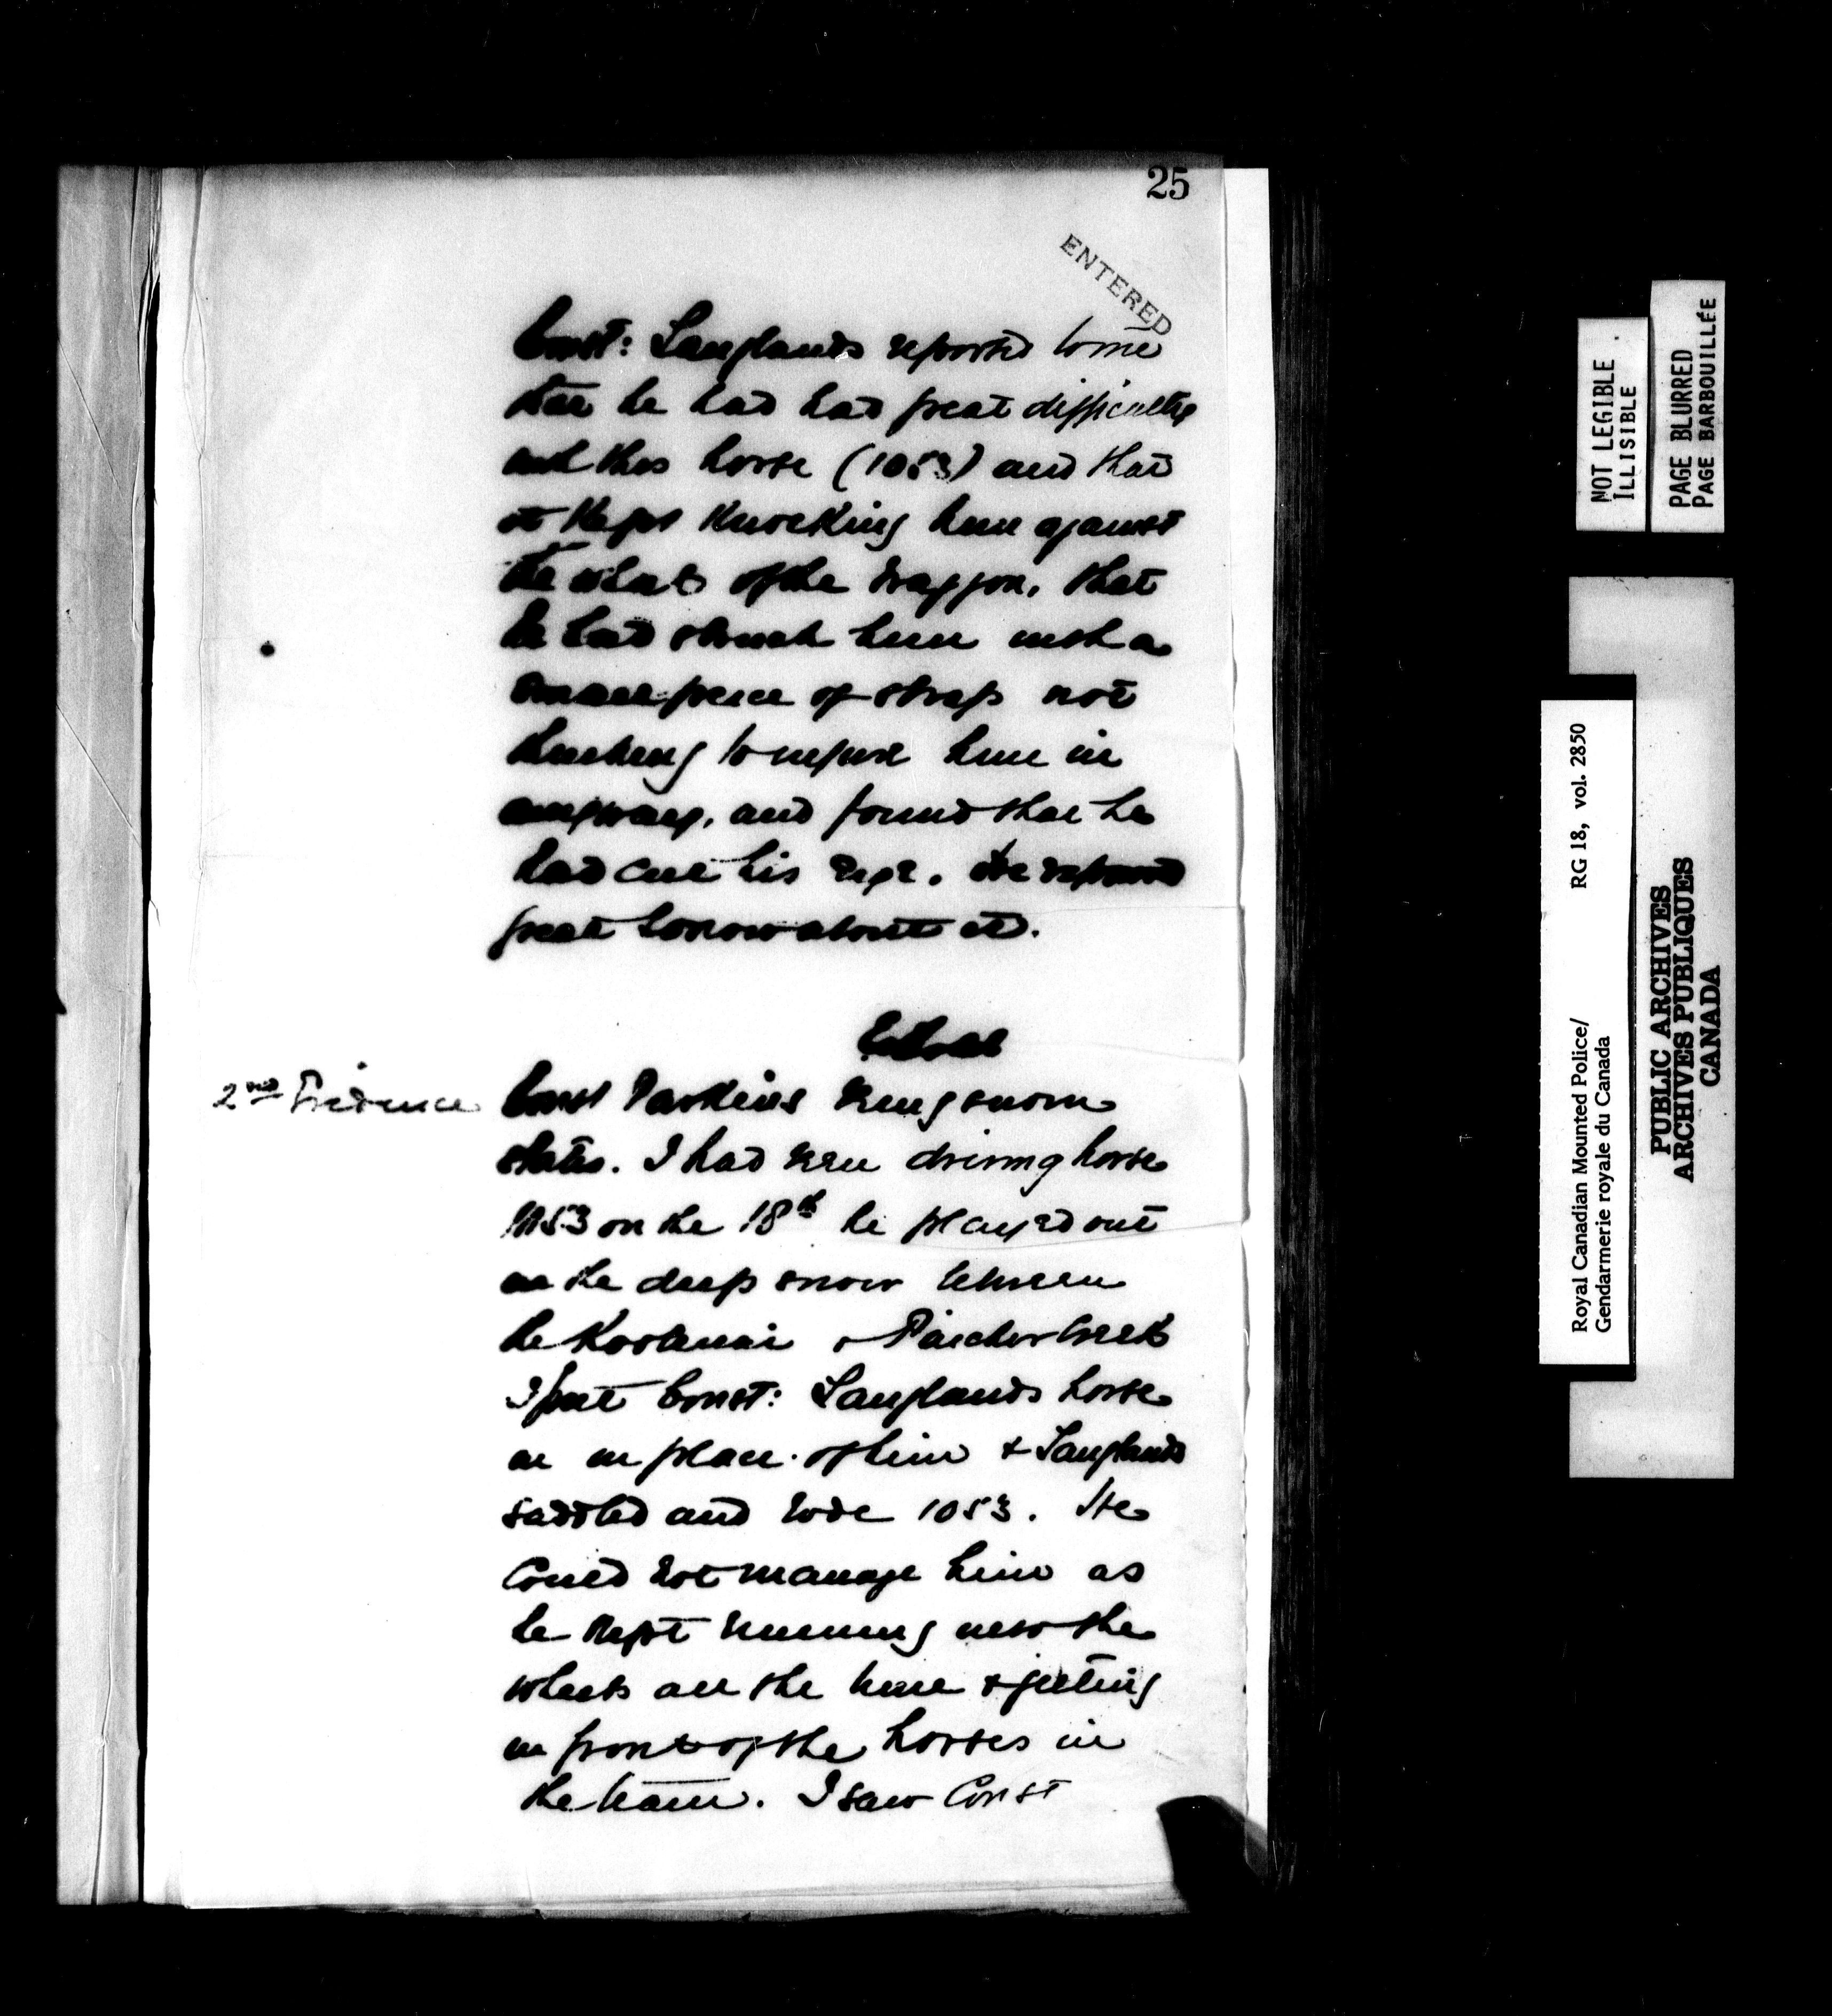 25
ENTERED
Const: Langlands reported to me
that he had had great difficulty
with this horse (1053) and that
it kept knocking him against
the wheels of the waggon, that
he had struck him with a
small piece of strap not
thinking to injure him in
anyway, and found that he
had cut his eye. He expressed
great sorrow about it.
2nd Evidence
Const Parkins being sworn
states. I had been driving horse
1053 on the 18th he played out
in the deep snow between
the Kootenai & Pincher Creek
I put Const: Langlands horse
in in place of him & Langlands
saddled and rode 1053. He
could not manage him as
he kept running into the
wheels all the time & getting
in front of the horses in
the team. I saw Const
NOT LEGIBLE
ILLISIBLE
PAGE BLURRED
PAGE BARBOUILLÉE
Royal Canadian Mounted Police/
Gendarmerie royale du Canada
RG 18, vol. 2850
PUBLIC ARCHIVES
ARCHIVES PUBLIQUES
CANADA